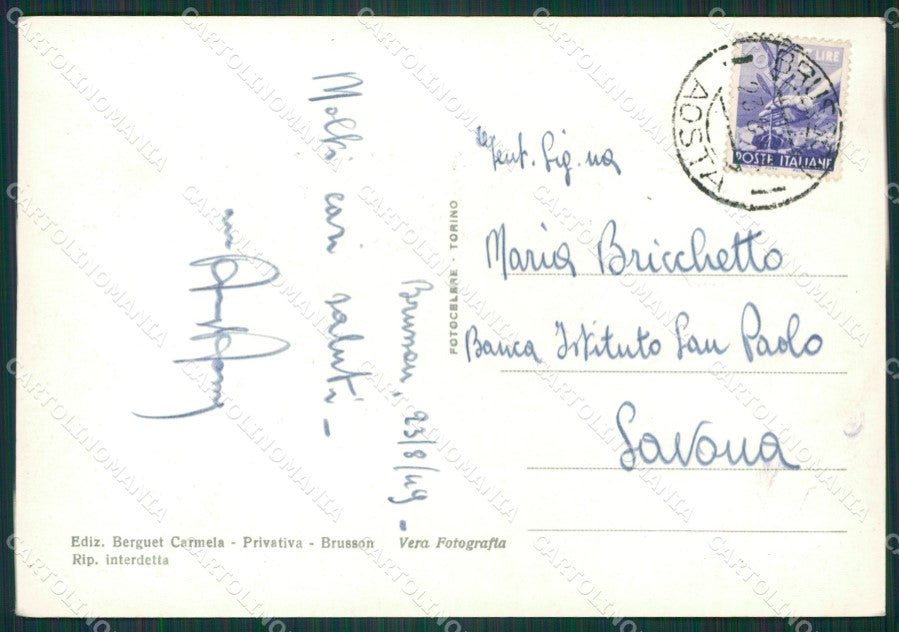 Brusson, 23/8/49 -
Molti cari saluti -
Gent. Sig.na
Maria Bricchetto
Banca Istituto San Paolo
Savona
FOTOCELERE - TORINO
Ediz. Berguet Carmela - Privativa - Brusson Vera Fotografia
Rip. interdetta
LIRE
POSTE ITALIANE
AOSTA
CARTOLINOMANIA